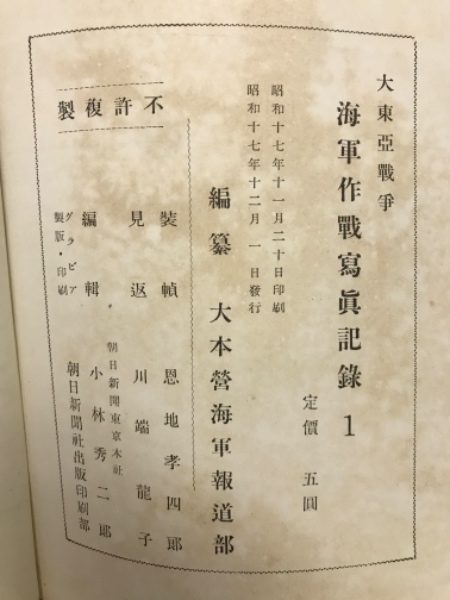 大東亞戰爭
海軍作戰寫眞記錄 1
定價 五圓
昭和十七年十一月二十日印刷
昭和十七年十二月 一 日發行
編纂 大本營海軍報道部
不許複製
裝幀 恩地孝四郎
見返 川端龍子
朝日新聞東京本社
編輯 小林秀二郎
グラビア製版・印刷 朝日新聞社出版印刷部